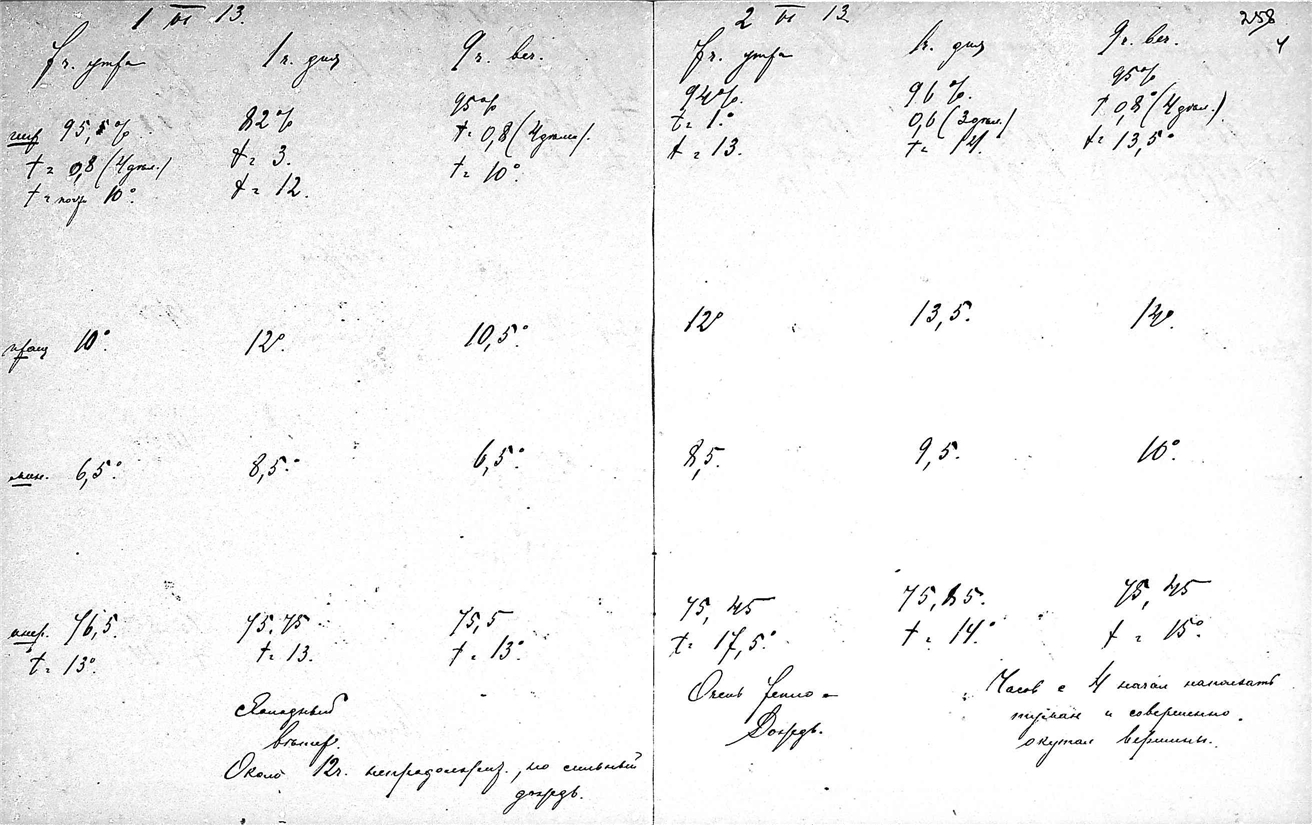 1 VI 13.
7 ч. утра 1 ч. дня 9 ч. веч.
гигр 95,5% 82% 95%
t = 0,8 (4 дел.) t = 3. t = 0,8 (4 дел.).
t = 10°. t = 12. t = 10°.
пращ 10° 12°. 10,5°
мин. 6,5° 8,5° 6,5°
анер. 76,5. 75,75 75,5
t = 13° t = 13. t = 13°.
Западный
вѣтер.
Около 12 ч. непродолжит., но сильный
дождь.
2 VI 13 258
7 ч. утра 1 ч. дня 9 ч. веч.
94%. 96%. 95%
t = 1.° 0,6 (3 дел.) 0,8° (4 дел.)
t = 13. t = 14. t = 13,5°
12° 13,5. 14°.
8,5. 9,5. 10°.
75,45 75, 75,45
t = 17,5° t = 14° t = 15°
Очень тепло =
Дождь.
Часов с 4 начал наползать
туман и совершенно
окутал вершины.